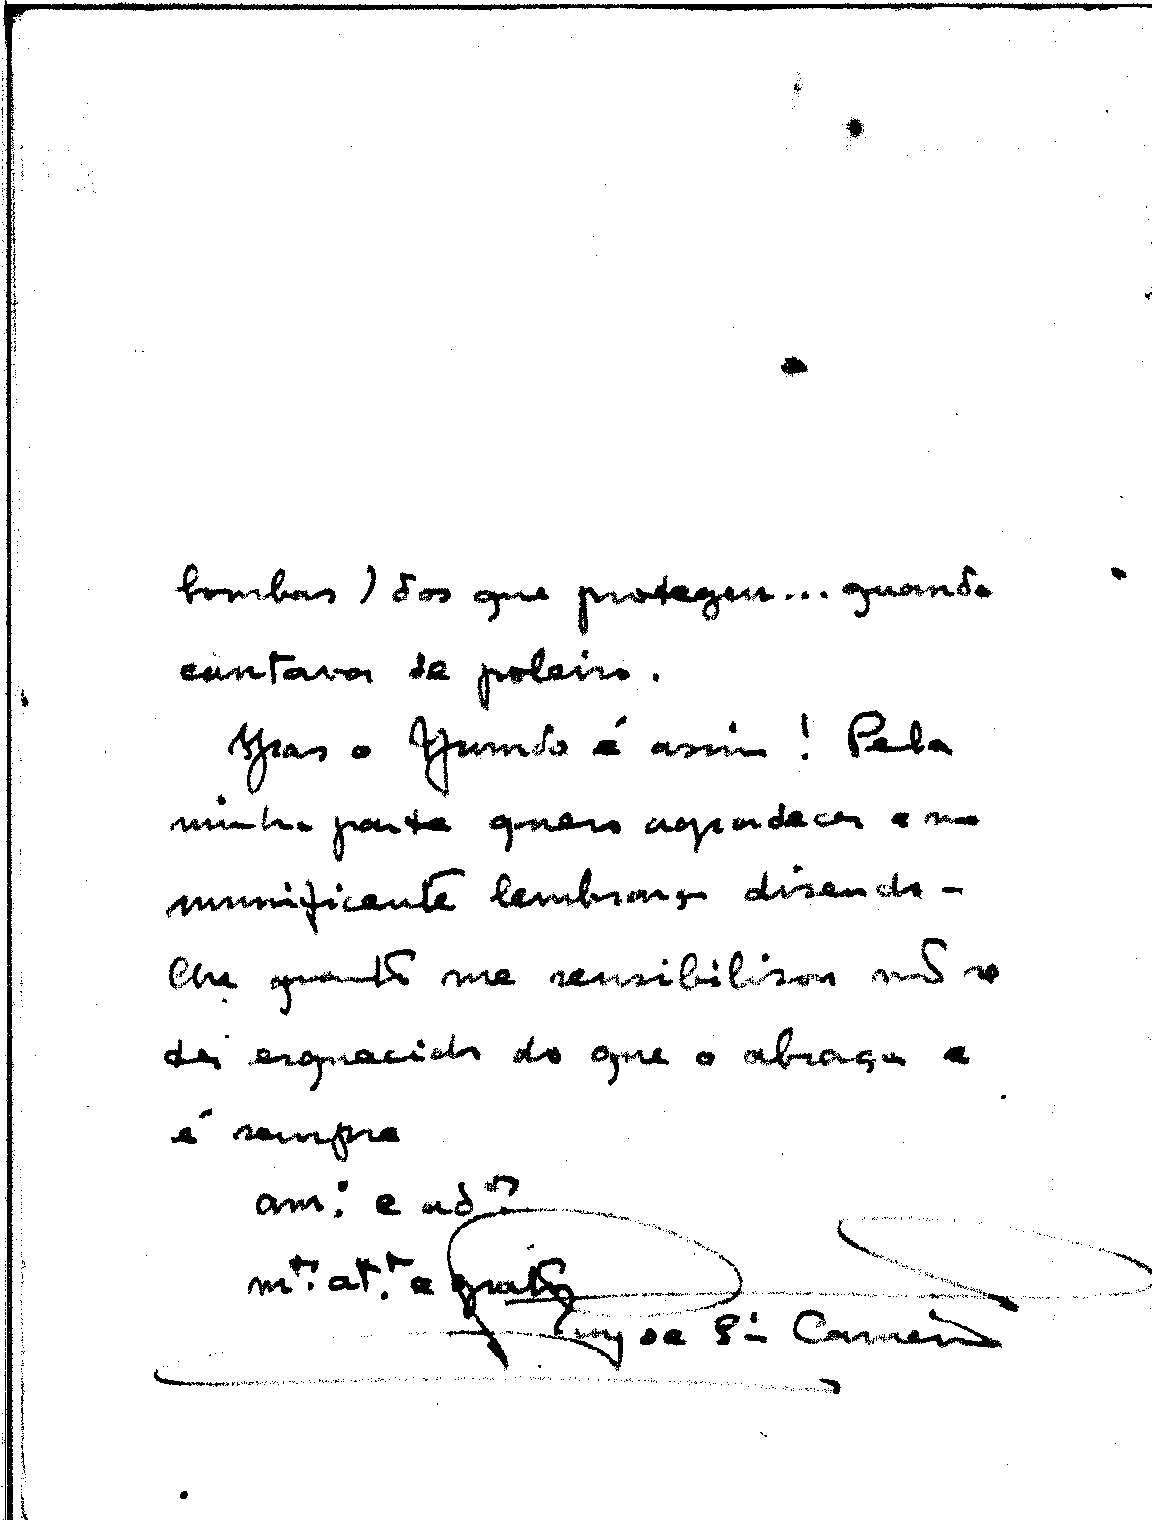 bombas) dos que protegem... quando
cantava de poleiro.
Mas o Mundo é assim! Pela
minha parte quero agradecer a sua
munificente lembrança disendo-
lhe quanto me sensibilisou não se
dei esquecido do que o abraça e
é sempre
am.º e ad.ºʳ
m.ᵗᵒ at.ᵗᵒ e grato
Ruy de Sá Carneiro